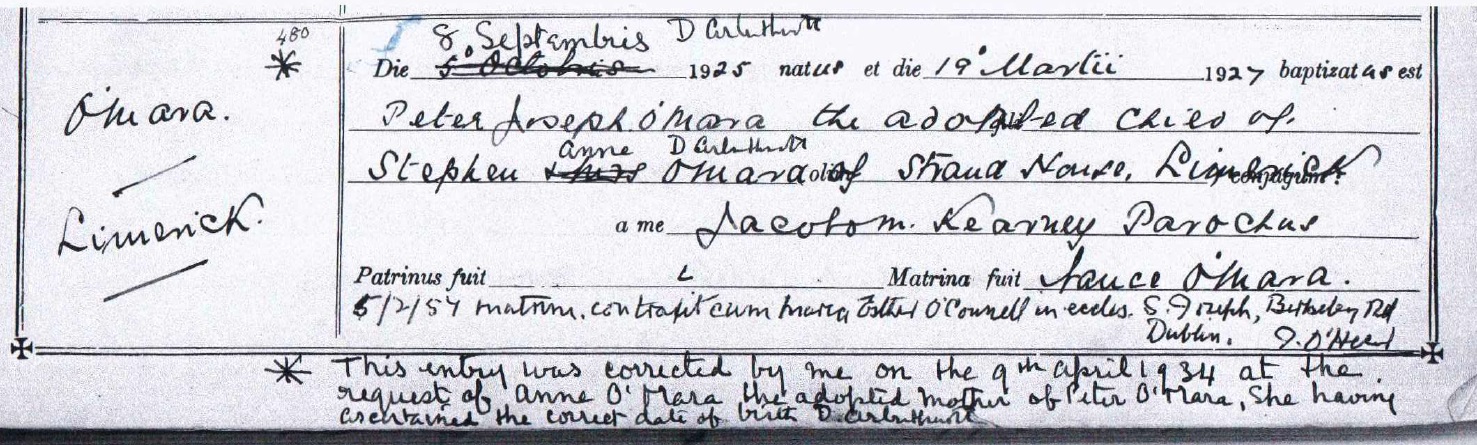 480
8. Septembris D Arbuthnott
*
Die 5° Octobris 1925 natus et die 19° Martii 1927 baptizatus est
O'Mara.
Peter Joseph O'Mara the adopted child of
Anne D Arbuthnott
Stephen & Mrs O'Mara of Strand House, Limerick
Limerick.
a me Jacobo M. Kearney Parochus
Patrinus fuit Matrina fuit Nance O'Mara.
5/2/57 matrim. contraxit cum Maria Esther O'Connell in eccles. S. Joseph, Berkeley Rd
Dublin.
* This entry was corrected by me on the 9th April 1934 at the
request of Anne O'Mara the adopted mother of Peter O'Mara, She having
ascertained the correct date of birth D. Arbuthnott